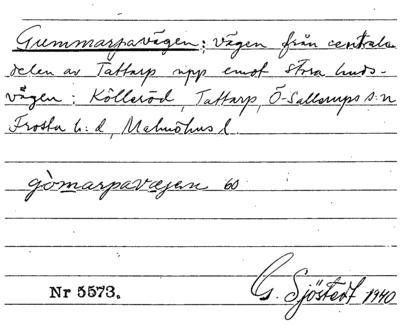 Gummarpavägen: vägen från centrala
delen av Tattarp upp emot stora lands-
vägen; Kölleröd, Tattarp, Ö-Sallerups s:n
Frosta h:d, Malmöhus l.
gòmarpavæjen 60
Nr 5573.
G. Sjöstedt 1940